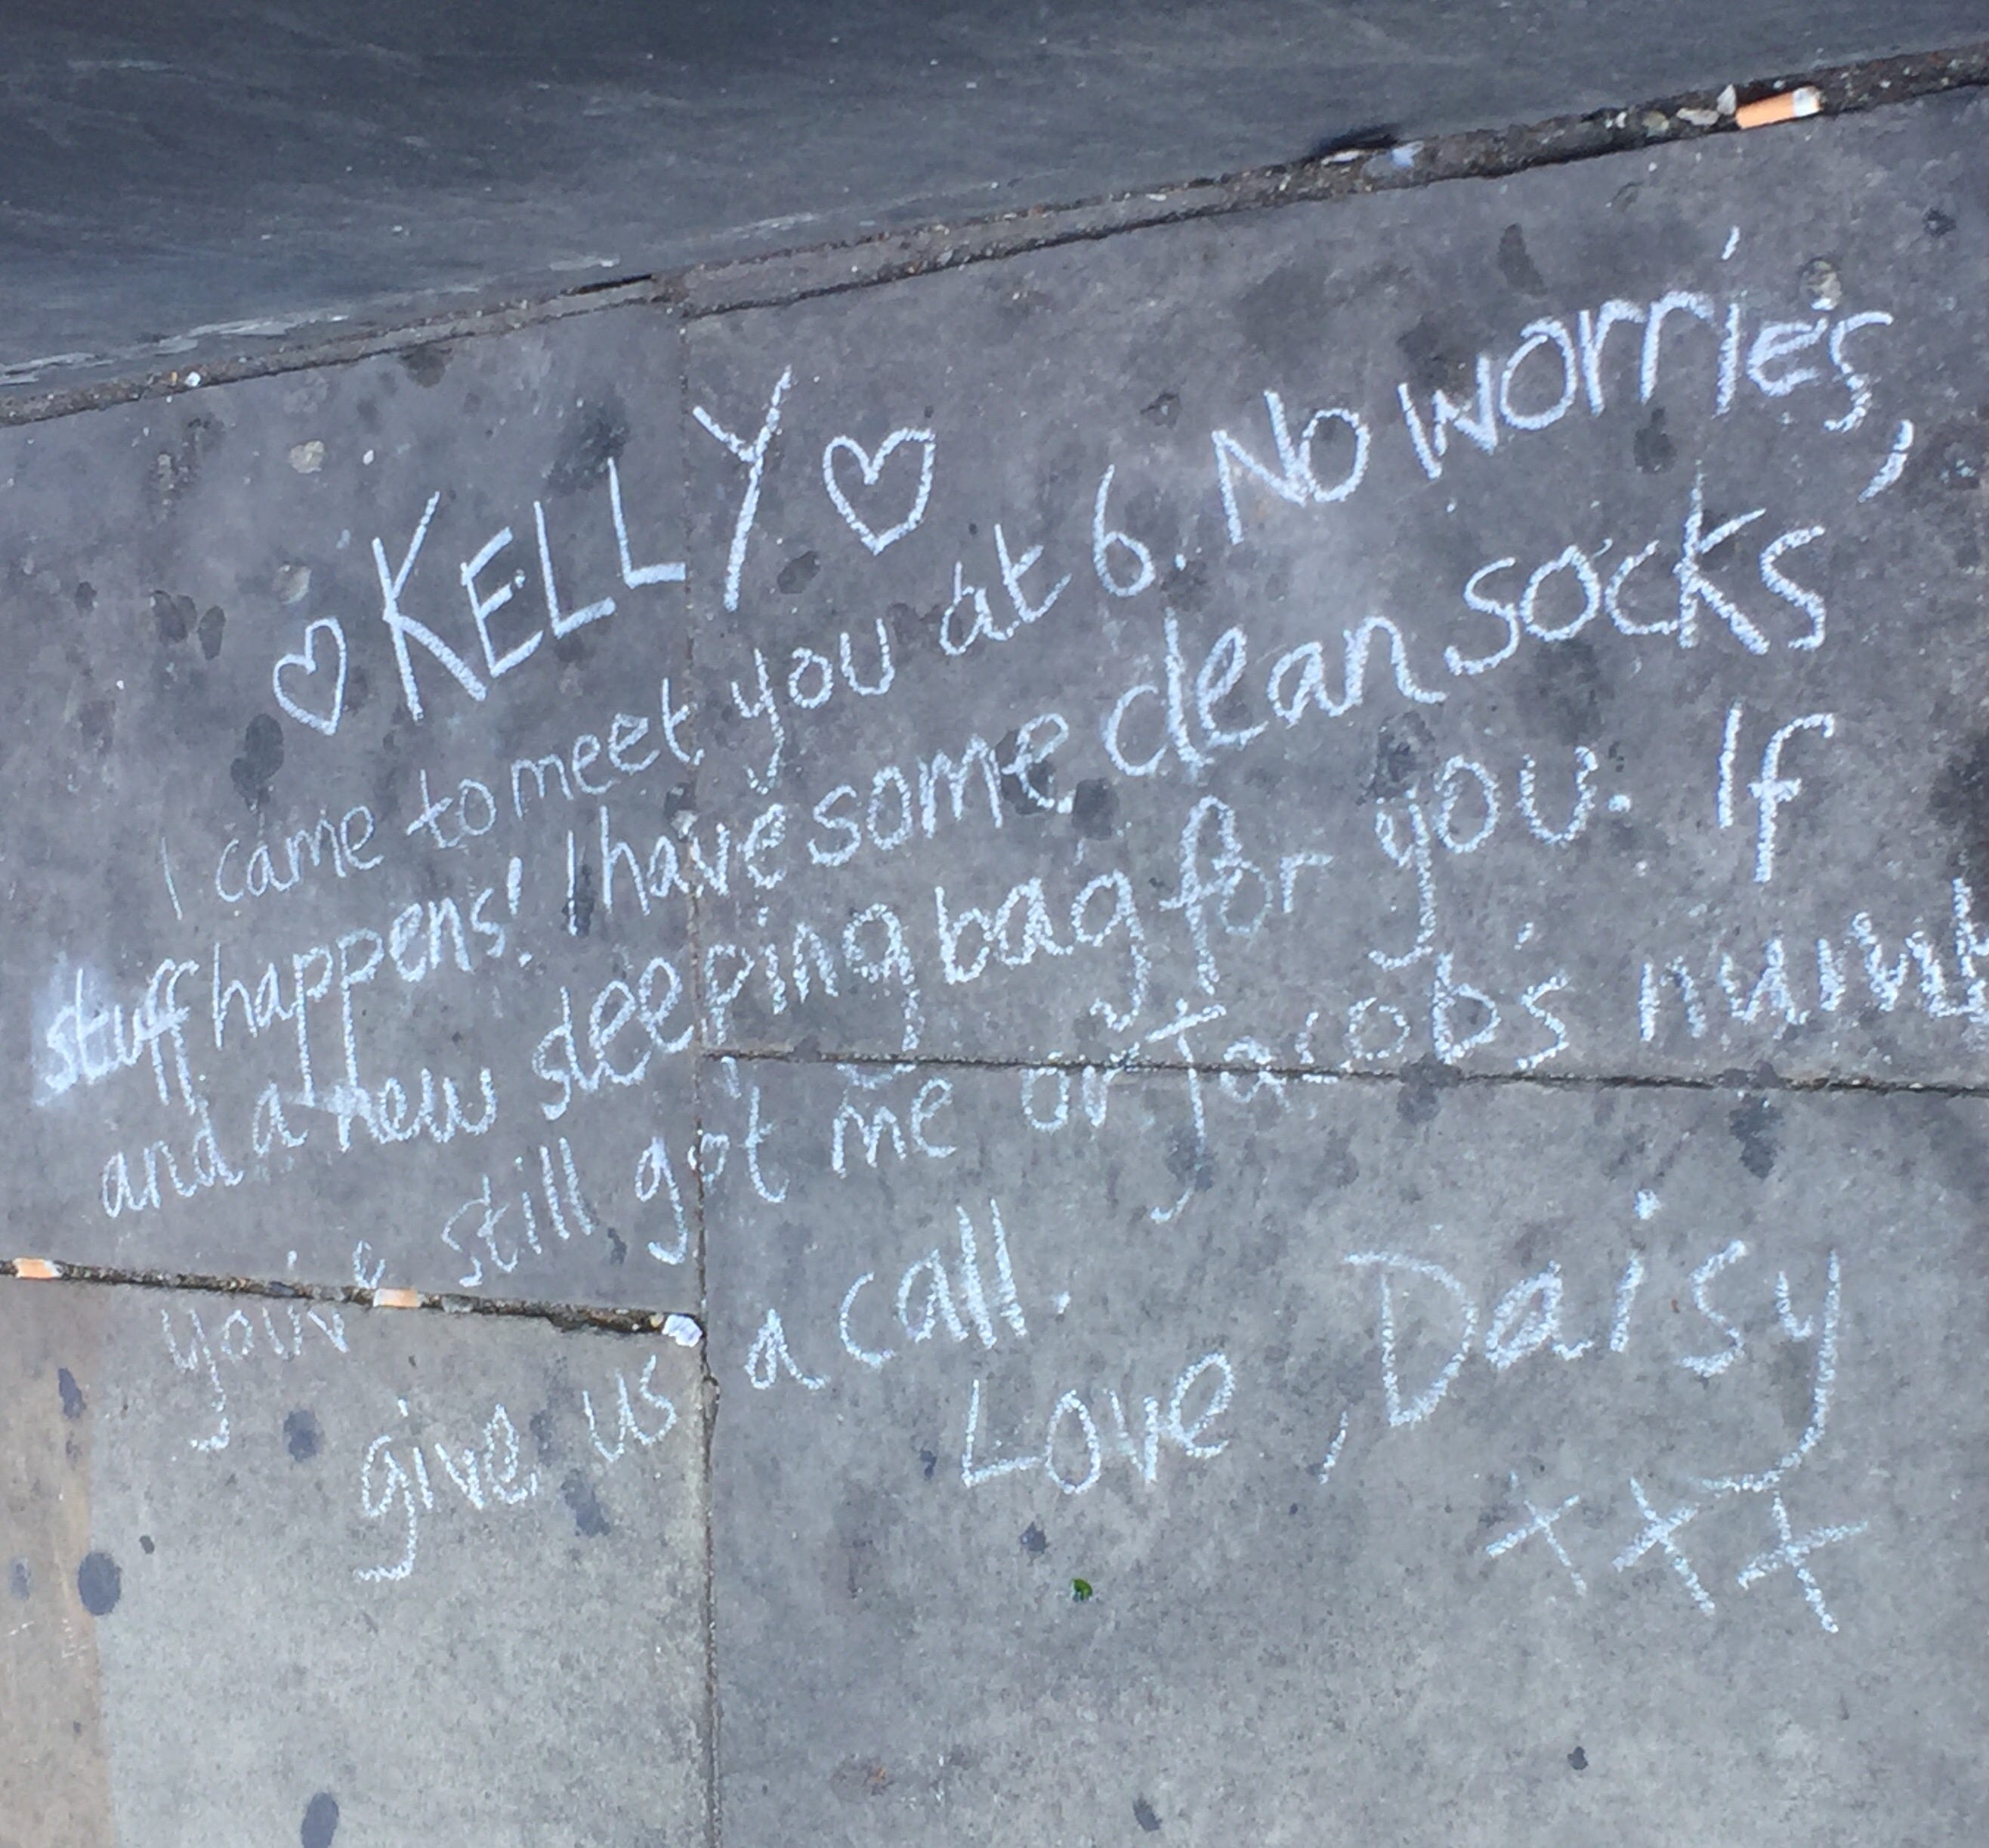 ♡ KELLY ♡
I came to meet you at 6. No worries,
stuff happens! I have some clean socks
and a new sleeping bag for you. If
you've still got me or Jacob's numb
give us a call.
Love, Daisy
xxx